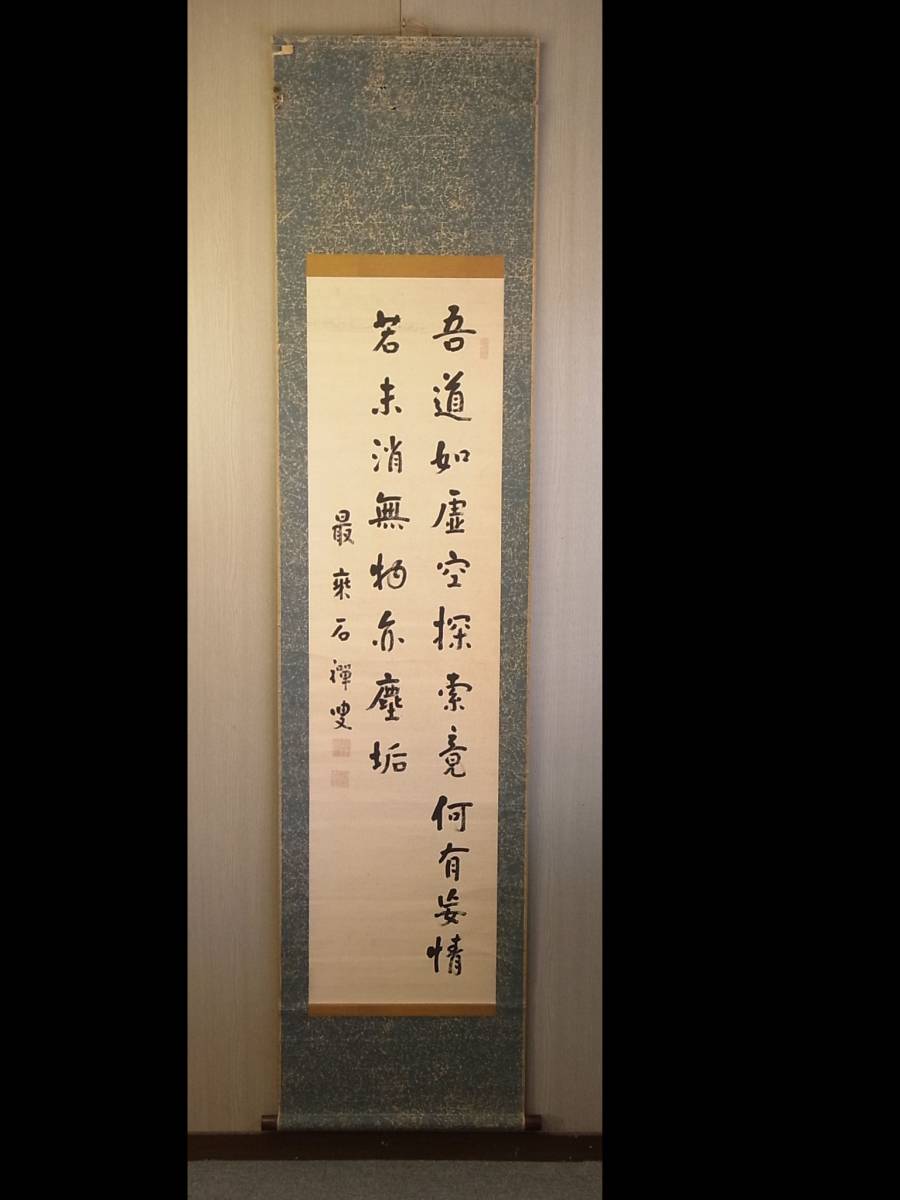 吾道如虛空探索竟何有妄情
若未消無物亦塵垢
最乘石禪叟